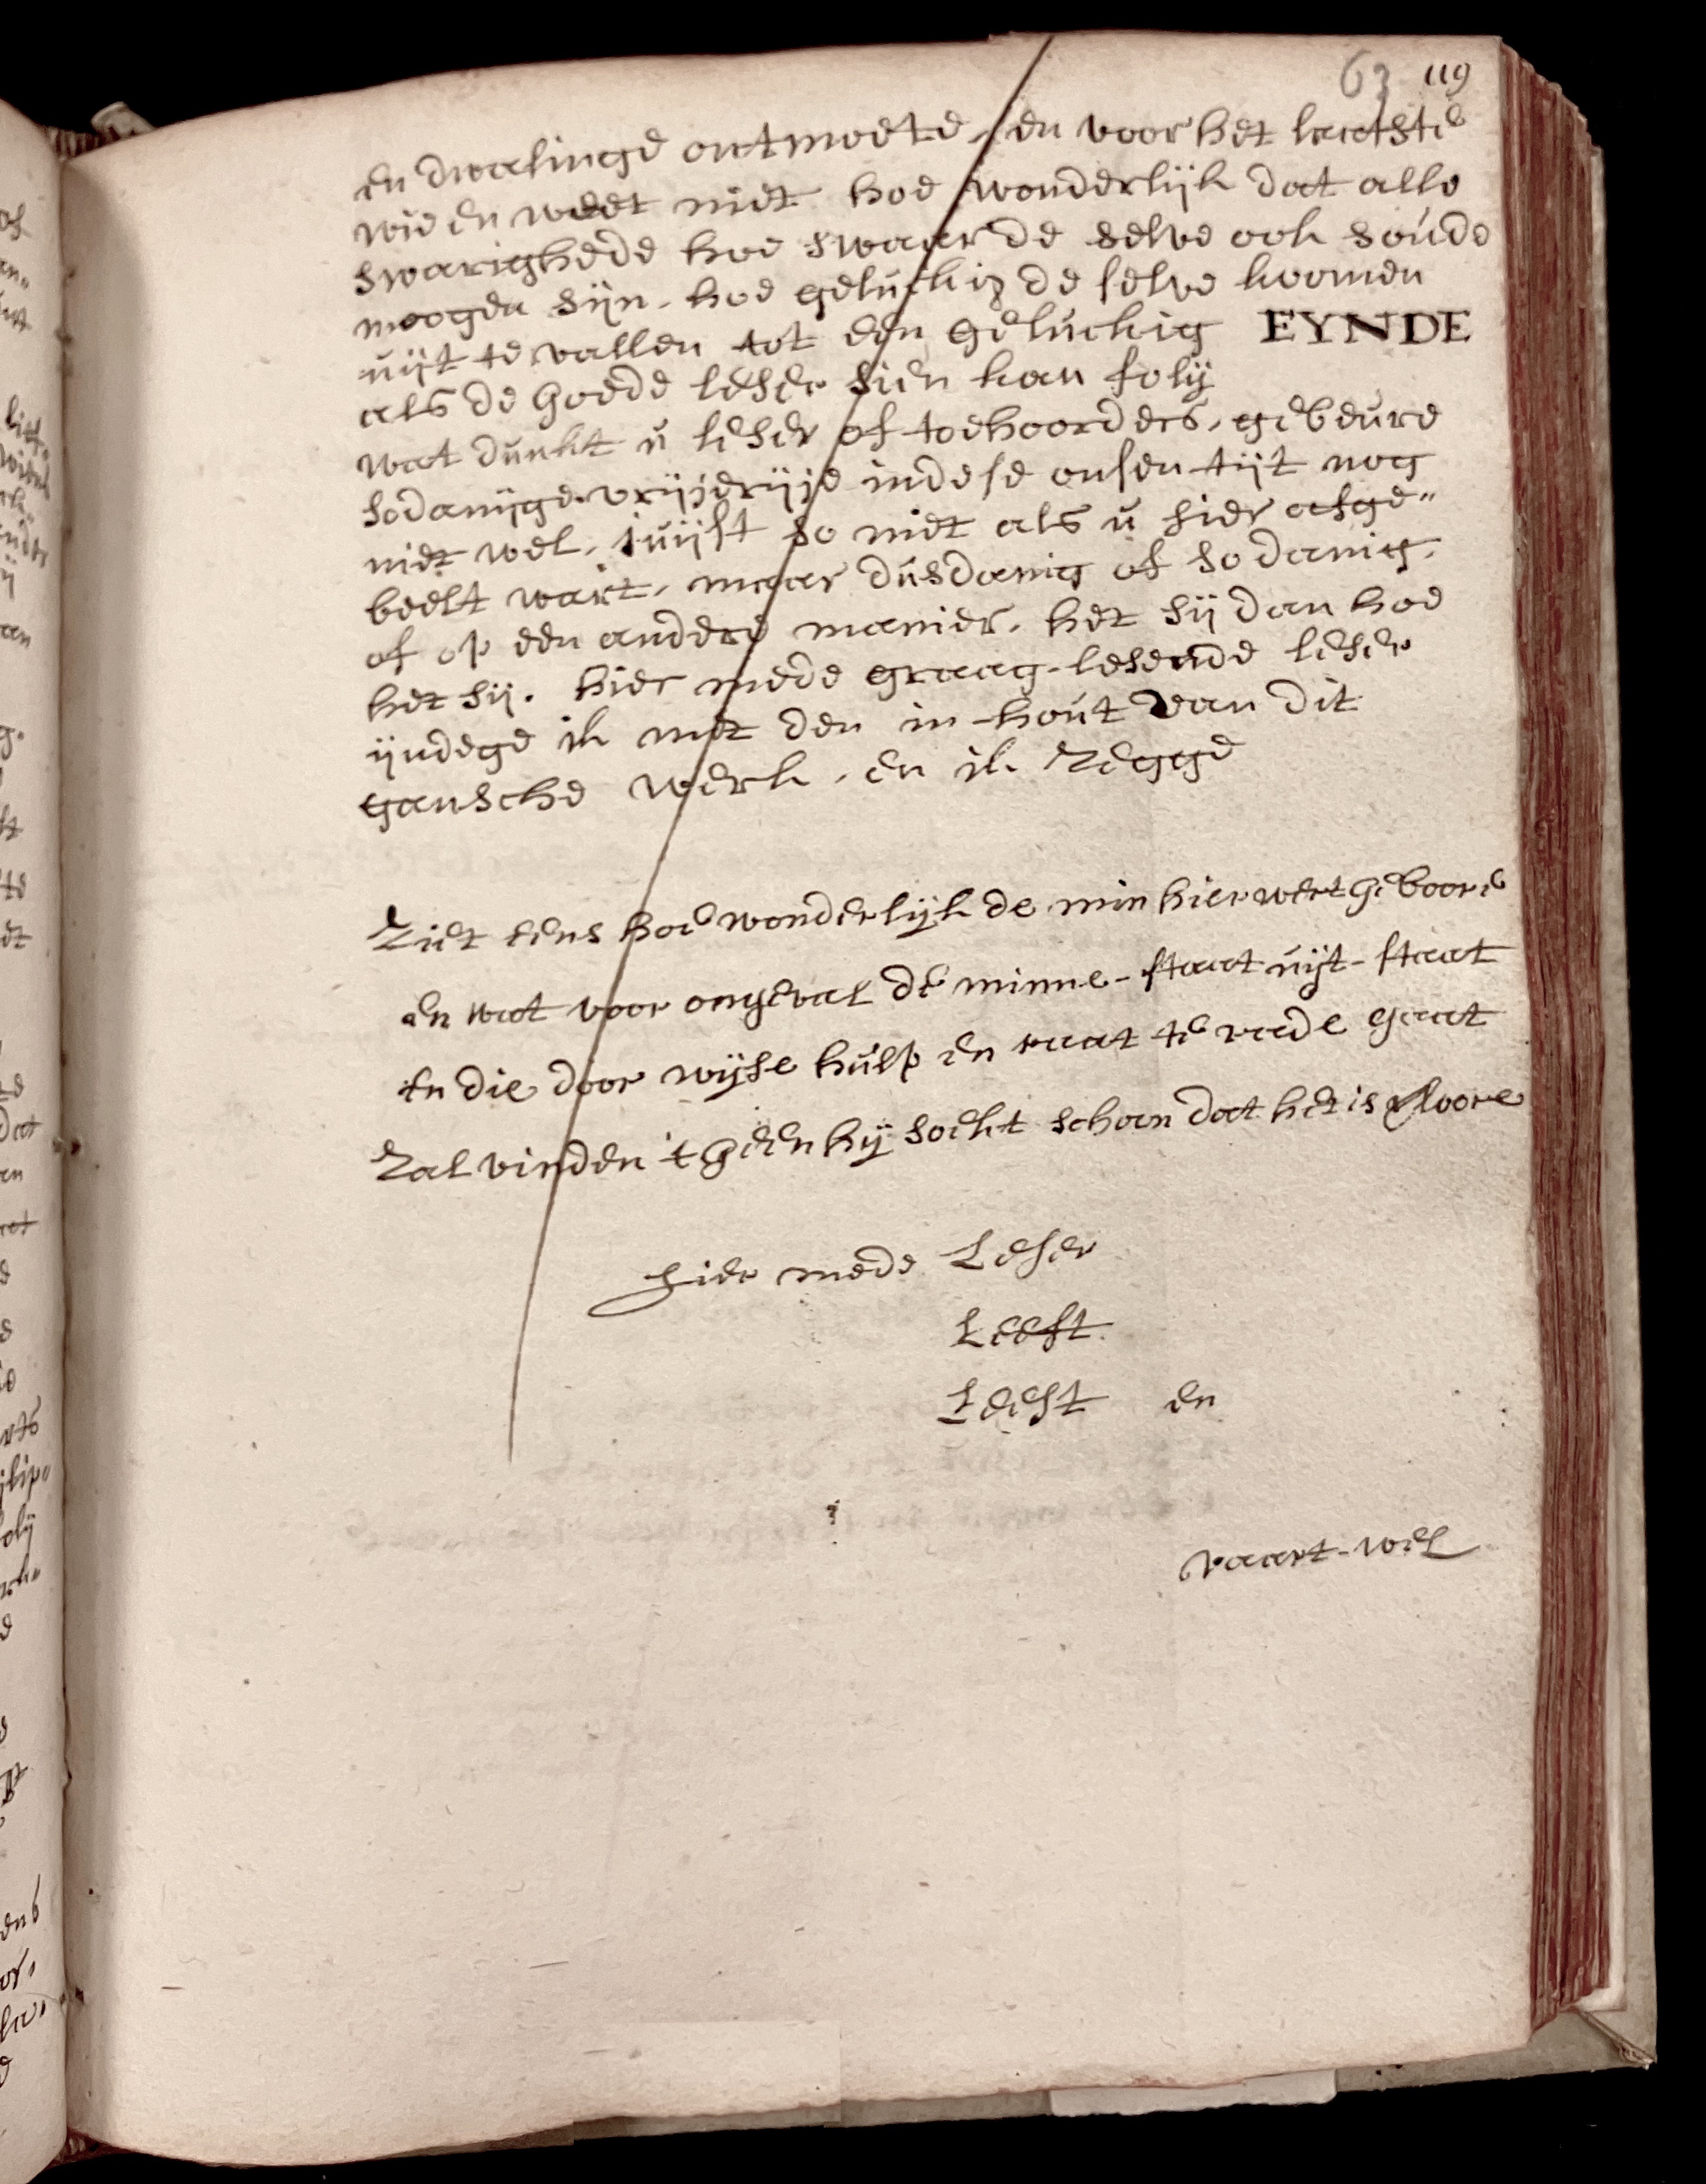 63 119
en dwalinge ontmoete, en voor het laatste
wie en weet niet hoe wonderlijk dat alle
swarighede hoe swaar de selve ook soúde
moogen sijn, hoe gelúckig de selve koomen
úijt te vallen tot een gelúckig EYNDE
als de goede leser sien kan folij
wat dúnkt ú leser of toehoorders, gebeúre
sodanijge vrijerije indese onsen tijt nog
niet wel, júijst so niet als ú hier afge"
beelt wart, maar dúsdanig of sodanig,
of op een andere manier, het sij dan hoe
het sij. hier mede graag-lesende leser
ijndege ik met den in-hoút van dit
gansche werk, en ik zegge
Ziet eens hoe wonderlijk de min hier wert geboore
en wat voor ongeval de minne-staat úijt-staat
en die door wijse húlp en raat te rade gaat
Zal vinden 't geen hij soekt schoon dat het is
hier mede Leser
Leeft
Leest en
vaart-wel